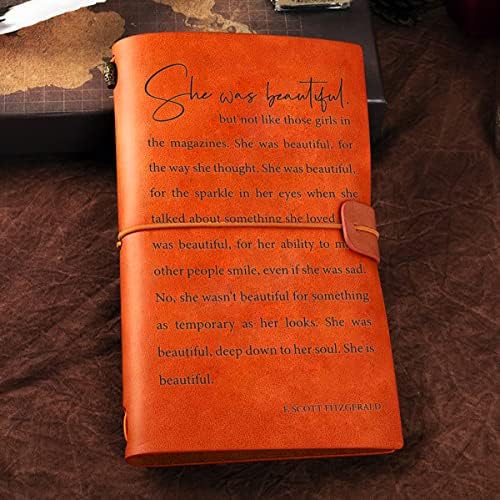 She was beautiful.
but not like those girls in
the magazines. She was beautiful, for
the way she thought. She was beautiful,
for the sparkle in her eyes when she
talked about something she loved
was beautiful, for her ability to m
other people smile, even if she was sad.
No, she wasn't beautiful for something
as temporary as her looks. She was
beautiful, deep down to her soul. She is
beautiful.
F. SCOTT FITZGERALD